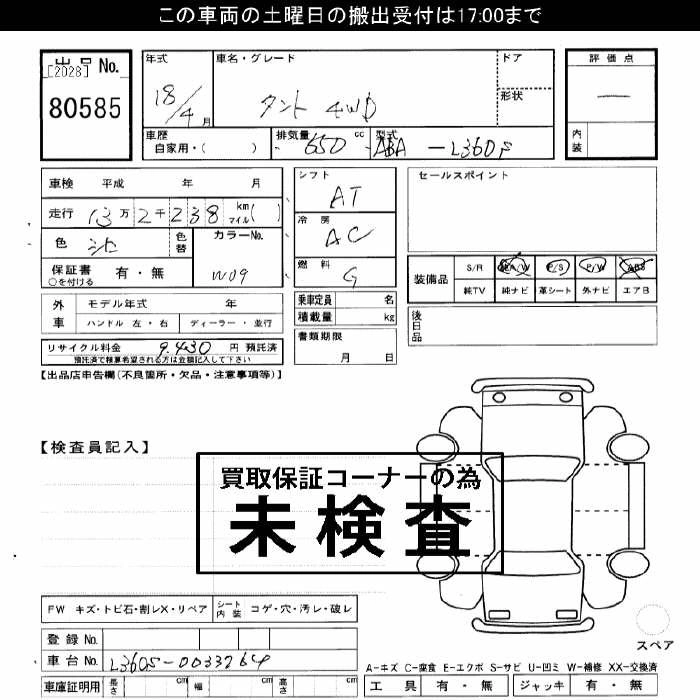 この車両の土曜日の搬出受付は17:00まで
出品 No.
[2028]
80585
年式
18/4月
車名・グレード
タント 4WD
ドア
形状
評価点
―
内装
車歴
自家用・( )
排気量
650 cc
型式
ABA-L360S
車検 平成 年 月
走行 13万2千238 km マイル( )
色 シロ
色替
カラーNo.
W09
保証書 有・無
○を付ける
シフト
AT
冷房
AC
燃料
G
セールスポイント
装備品
S/R
純A/W
P/S
P/W
ABS
純TV
純ナビ
革シート
外ナビ
エアB
外車
モデル年式 年
ハンドル 左・右
ディーラー・並行
乗車定員 名
積載量 kg
後日品
リサイクル料金 9,430 円 預託済
預託済で精算希望される方は金額記入して下さい
書類期限
月 日
【出品店申告欄(不良箇所・欠品・注意事項等)】
【検査員記入】
買取保証コーナーの為
未検査
FW キズ・トビ石・割レX・リペア
シート内装 コゲ・穴・汚レ・破レ
登録No.
車台No. L360S-0033264
スペア
A-キズ C-腐食 E-エクボ S-サビ U-凹ミ W-補修 XX-交換済
車庫証明用 長さ cm 幅 cm 高さ cm
工具 有・無
ジャッキ 有・無